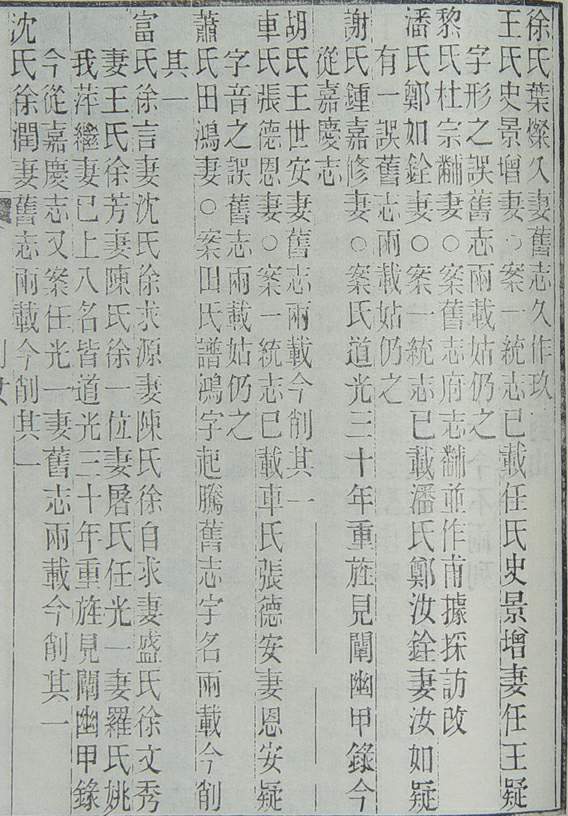 徐氏葉燦久妻舊志久作玖
王氏史景增妻○案一統志已載任氏史景增妻任王疑
字形之誤舊志兩載姑仍之
黎氏杜宗黼妻○案舊志府志黼並作甫據採訪改
潘氏鄭如銓妻○案一統志已載潘氏鄭汝銓妻汝如疑
有一誤舊志兩載姑仍之
謝氏鍾嘉修妻○案氏道光三十年重旌見闡幽甲錄今
從嘉慶志
胡氏王世安妻舊志兩載今削其一
車氏張德恩妻○案一統志已載車氏張德安妻恩安疑
字音之誤舊志兩載姑仍之
蕭氏田鴻妻○案田氏譜鴻字起騰舊志字名兩載今削
其一
富氏徐言妻沈氏徐求源妻陳氏徐自求妻盛氏徐文秀
妻王氏徐芳妻陳氏徐一位妻屠氏任光一妻羅氏姚
我萍繼妻已上八名皆道光三十年重旌見闡幽甲錄
今從嘉慶志又案任光一妻舊志兩載今削其一
沈氏徐潤妻舊志兩載今削其一